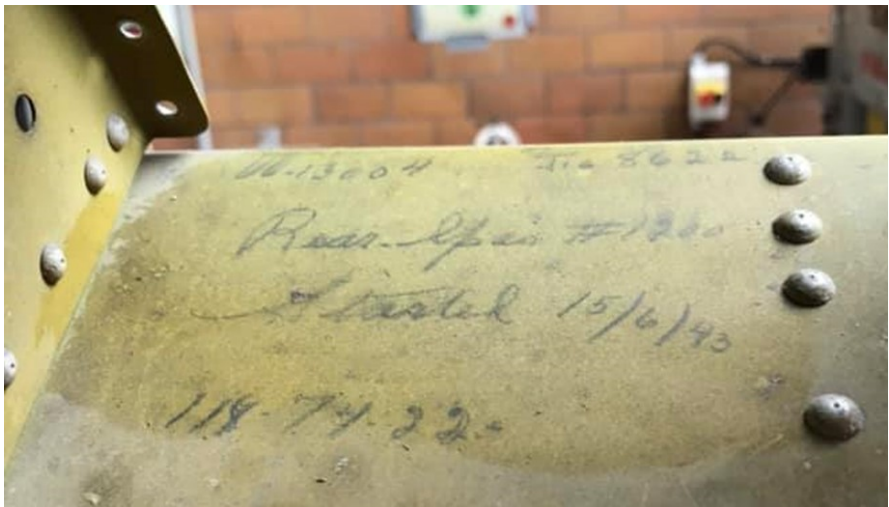 W.13604 Jig 8622
Rear Spar #1260
Started 15/6/43
118-74-22-